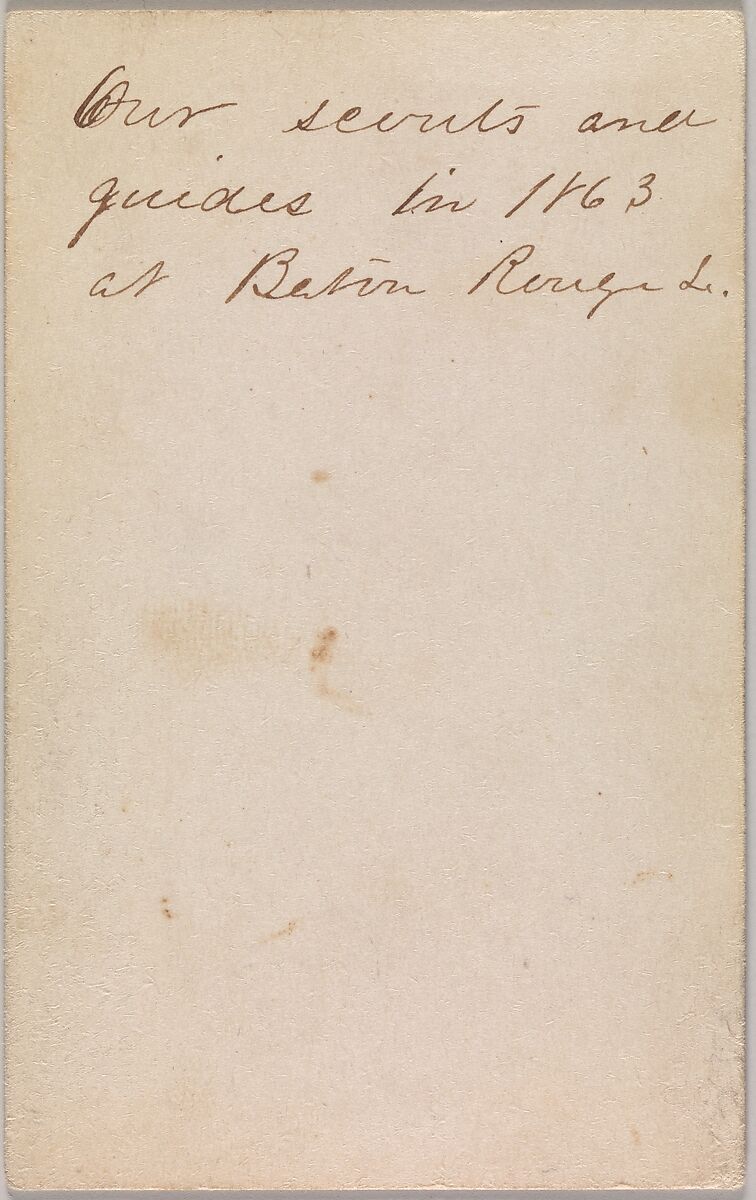 Our scouts and
guides in 1863
at Baton Rouge La.